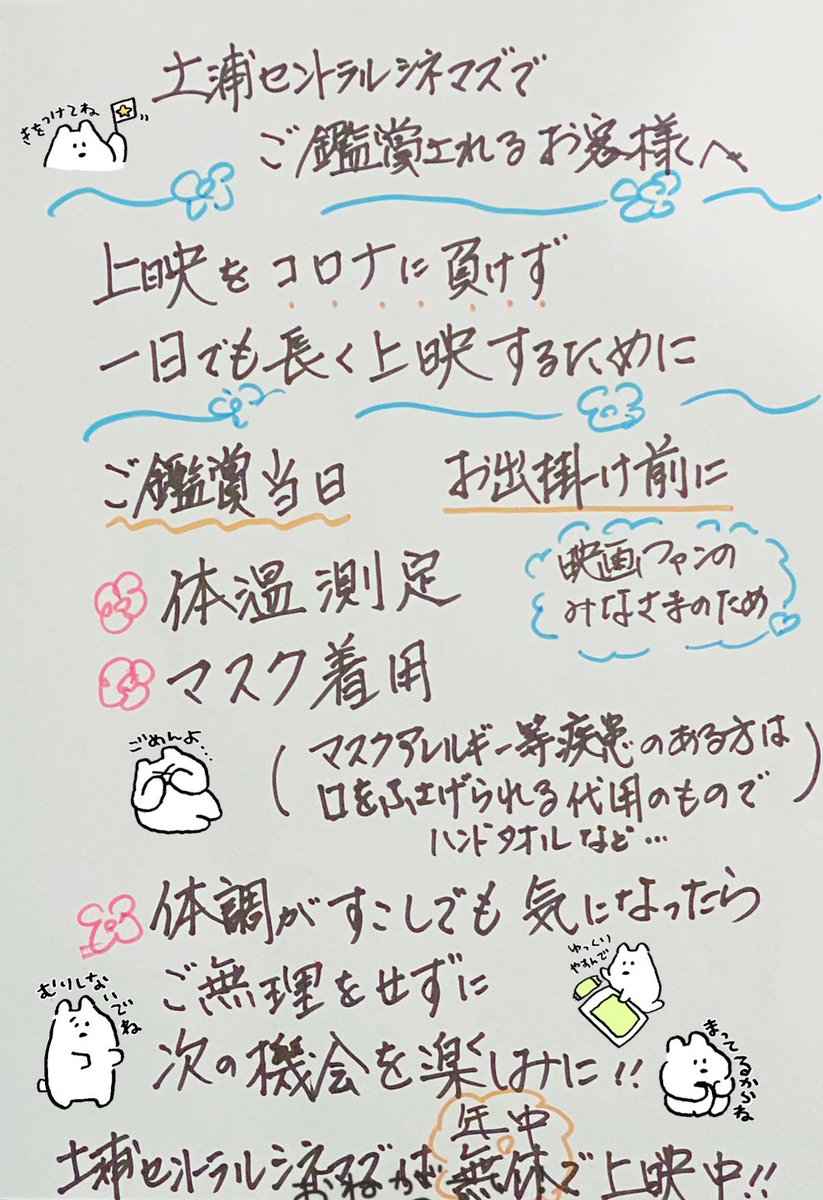 土浦セントラルシネマズで
きをつけてね
ご鑑賞されるお客様へ
上映をコロナに負けず
一日でも長く上映するために
ご鑑賞当日
お出掛け前に
映画ファンの
みなさまのため
体温測定
マスク着用
ごめんよ…
(マスクアレルギー等疾患のある方は
口をふさげられる代用のもので)
ハンドタオルなど…
体調がすこしでも気になったら
ゆっくり
やすんで
ご無理をせずに
むりしないでね
次の機会を楽しみに!!
まってるからね
年中
土浦セントラルシネマズは無休で上映中!!
おねが